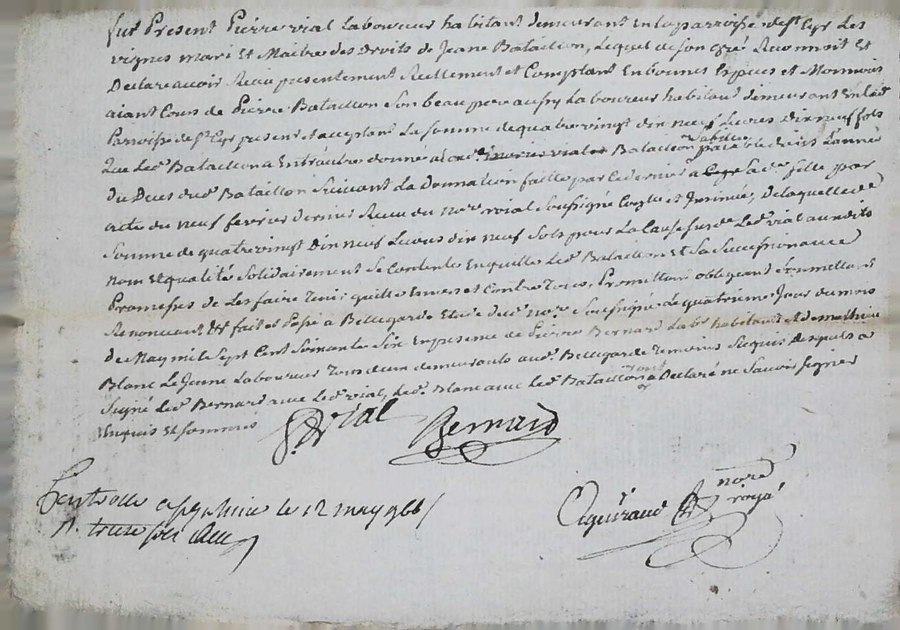 fut Present Pierre vial Laboureur habitant demeurant En la parroisse de st Cyr Les
vignes mari Et Maitre des Droits de Jeane Bataillon, Lequel de son gré Reconnoit Et
Declare avoir Recu presentement Reellement et Comptant En bonnes Espèces et Monnoie
aiant Cours de Pierre Bataillon Son beau pere aussy Laboureur habitant demeurant En lad
Parroisse de st Cyr present et acceptant La somme de quatre vingt dix neuf Livres dix neuf sols
Que led Bataillon a Entrautre donné a Bataillon
du Deces dud Bataillon Suivant La Donnation faitte par Ce dernier a fille par
acte du neuf fevrier dernier Recu du nore Soussigné Controllé et Insinué, De laquelle de
Somme de quatre vingt Dix neuf Livres dix neuf Sols pour La Cause susde Led vial audits
nom Et qualité Solidairement Se Contente En quitte Led Bataillon Et Sa Succession avec
Promesses de Les faire Tenir quitte Envers et Contre Tous, Promettant obligeant Soumettant
Renoncant fait et Passé a Bellegarde Etude dud Nore Soussigné Le quatrieme Jour du mois
De May mil Sept Cent Soixante Six En presence de Pierre Bernard Labr habitant et de mathieu
Blanc Le Jeune Laboureur Tous deux demeurants aud Bellegarde Temoins Requis Desquels a
Signé Led Bernard avec Led vial, Led Blanc avec Led Bataillon ont Declaré ne Savoir Signer
Enquis Et sommés
P vial Bernard
Controllé a le 12 may 1766
R. treize sols
nore
royal